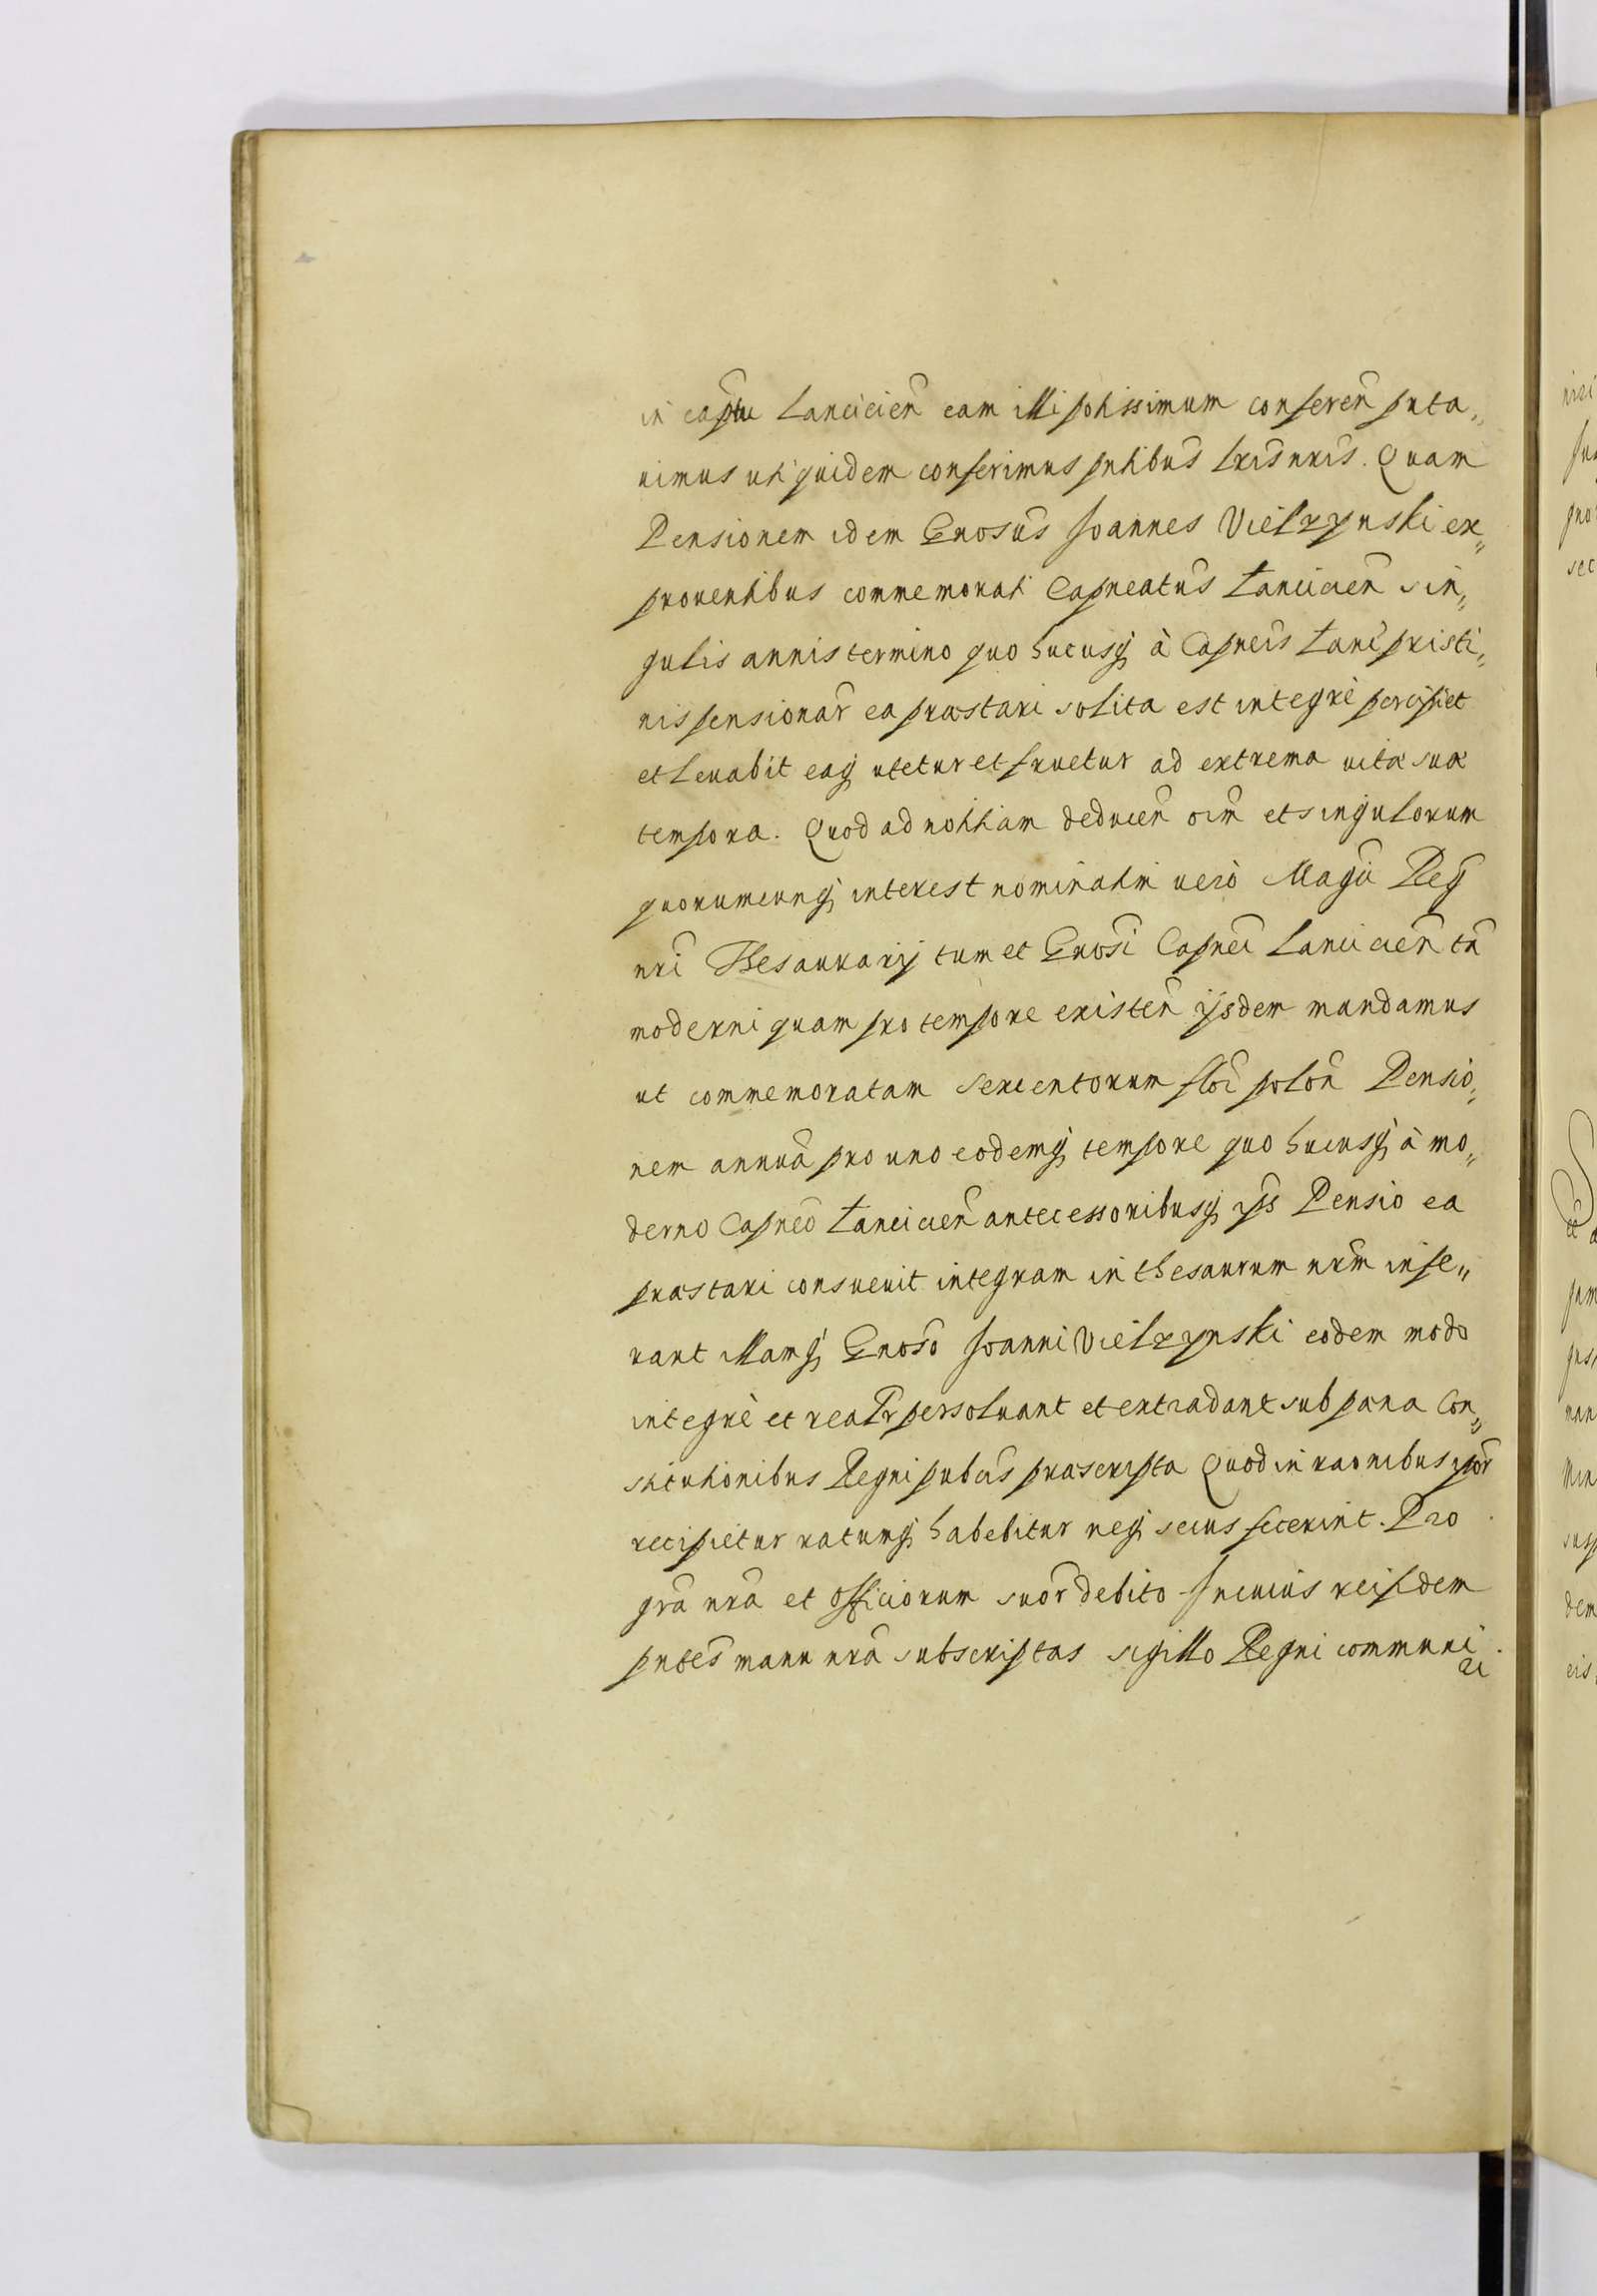 in captu Lancicien̄ eam illi potissimum conferen̄ puta„
uimus uti quidem conferimus pn̄tibus lr̄is nr̄is. Quam
Pensionem idem Gn̄osus Joannes Vielzynski ex„
prouentibus commemorati Capn̄eatus Lancicien̄ sin„
gulis annis termino quo hucusq̨ à Capn̄eis Lanc̄ pristi„
nis pensionar̄ ea præstari solita est integrè percipiet
et leuabit eaq̨ utetur et fruetur ad extrema uitæ suæ
tempora. Quod ad notitiam deducen̄ oīm et singulorum
quorumcunq̨ interest nominatim uerò Magcī Reg̃
nr̄i Thesaurarij tum et Gn̄osi Capn̄ei Lancicien̄ tā
moderni quam pro tempore existen̄ ijsdem mandamus
ut commemoratam sexcentorum flō polōn Pensio„
nem annuā pro uno eodemq̨ tempore quo hucusq̨ à mo„
derno Capn̄eo Lancicien̄ antecessoribusq̨ ip̄s Pensio ea
præstari consueuit integram in thesaurum nr̄m infe„
rant illamq̨ Gn̄oso Joanni Vielzynski eodem modo
integrè et realr̄ persoluant et extradant sub pæna Con„
stitutionibus Regni pubcīs præscripta Quod in raōnibus ip̄or̄
recipietur ratumq̨ habebitur neq̨ secus fecerint. Pro
grā nrā et officiorum suor̄ debito. In cuius rei fidem
pn̄tes manu nrā subscriptas sigillo Regni communi